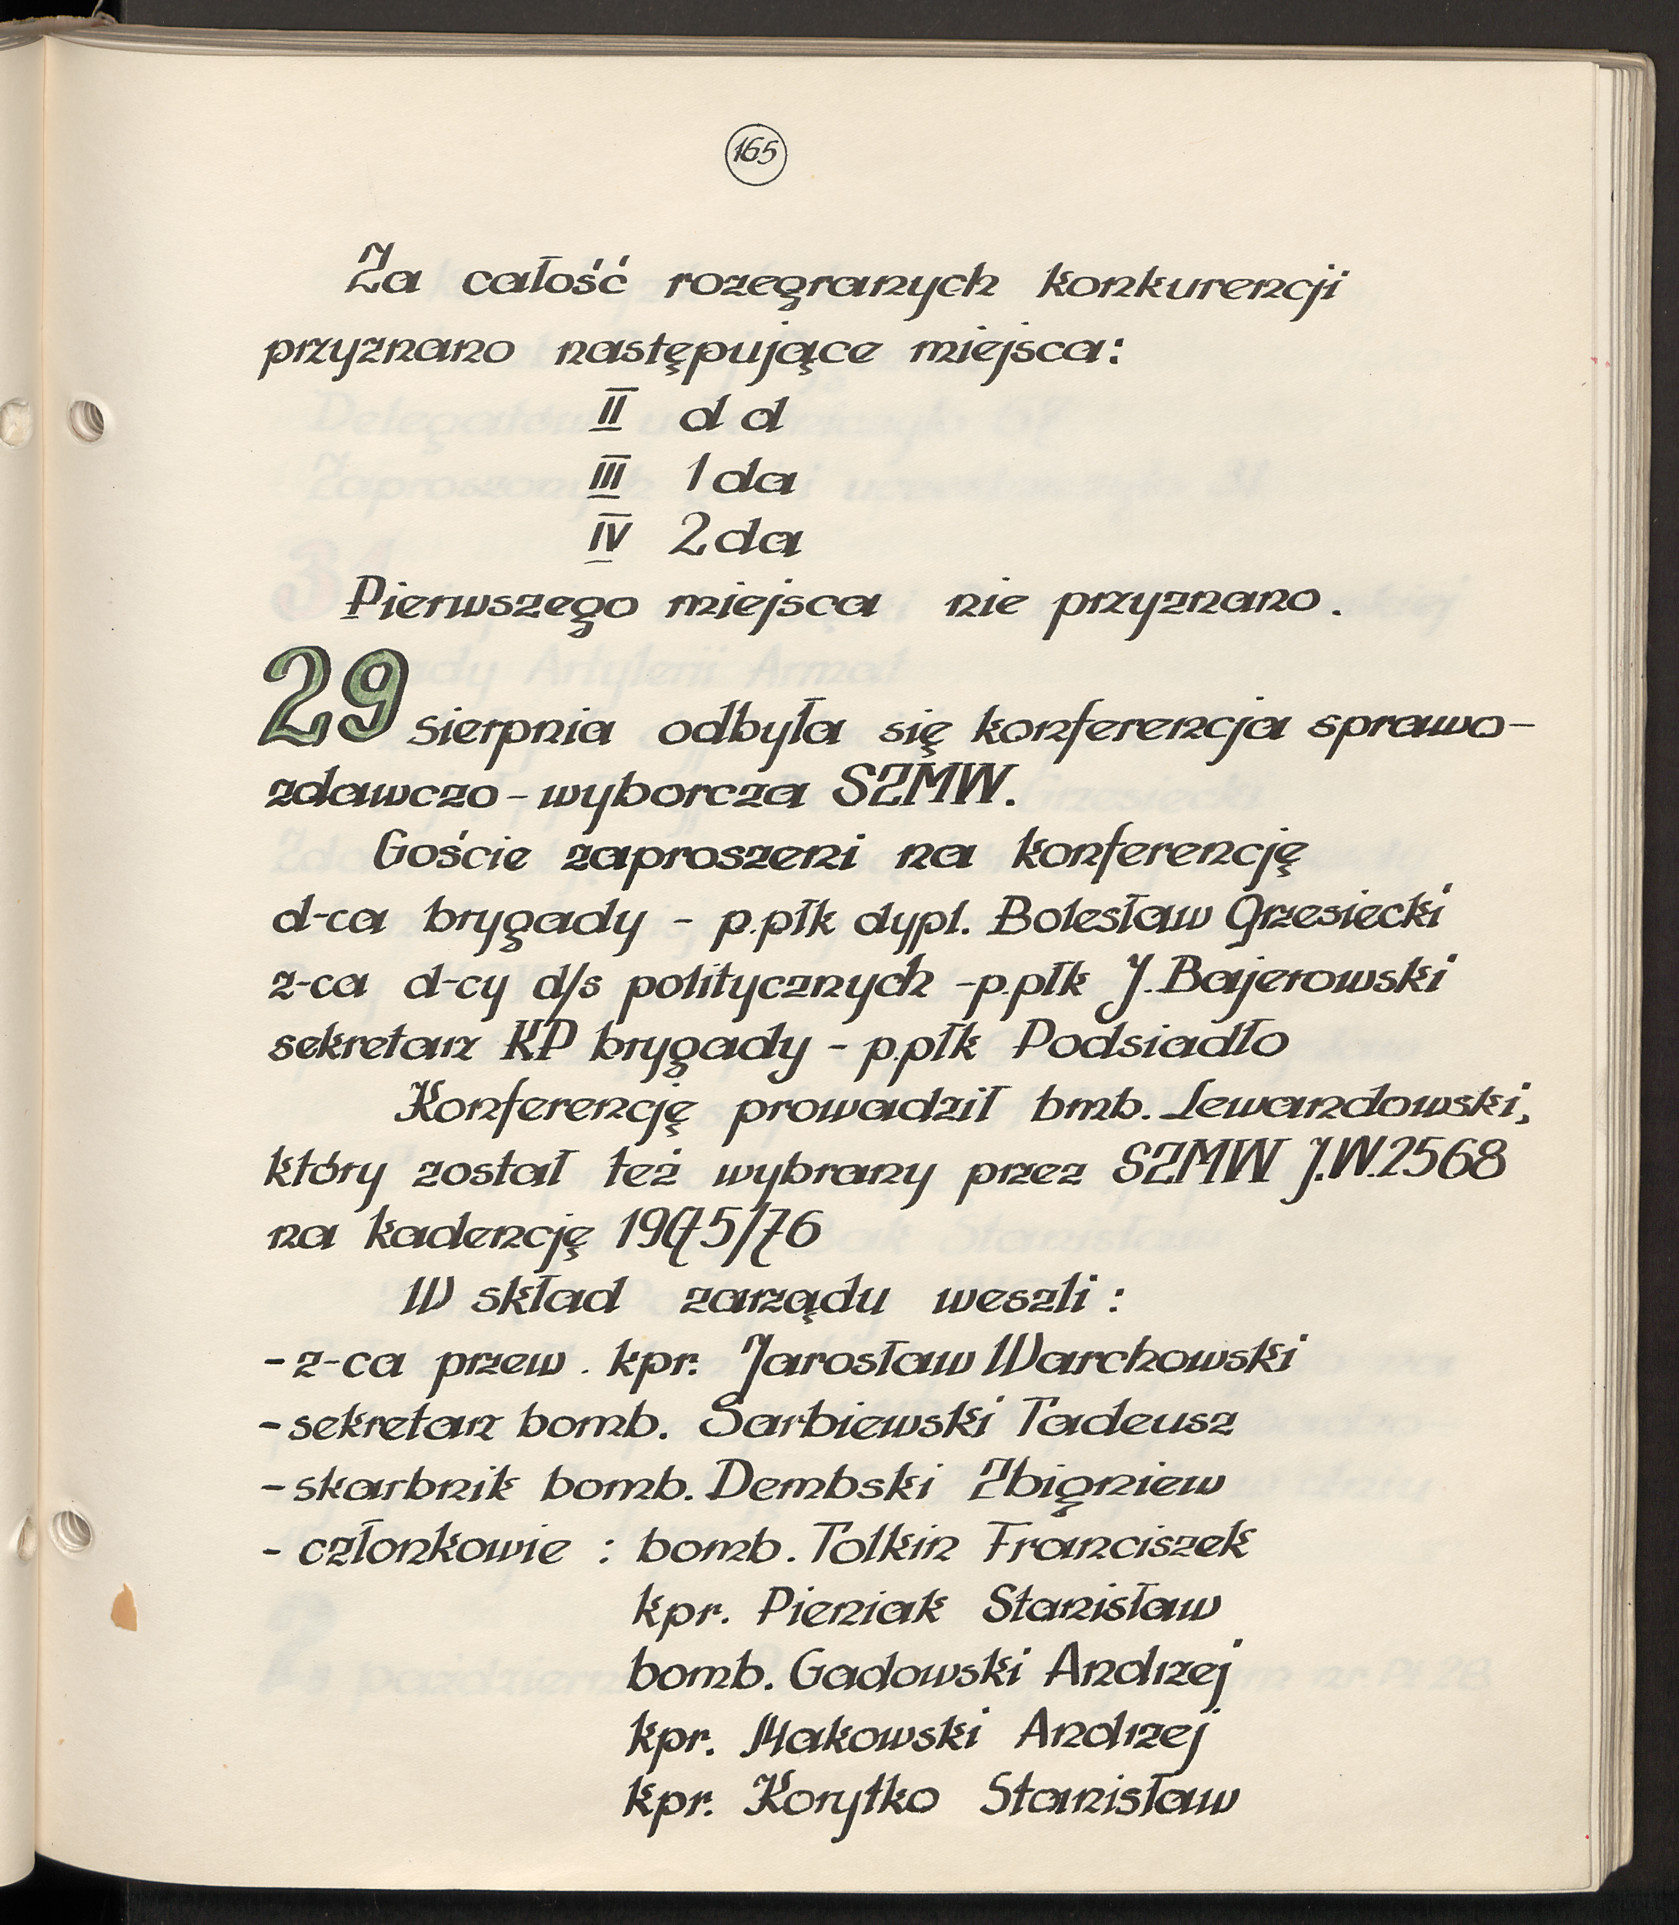 165
Za całość rozegranych konkurencji
przyznano następujące miejsca:
II d d
III 1da
IV 2da
Pierwszego miejsca nie przyznano.
29 sierpnia odbyła się konferencja sprawo-
zdawczo-wyborcza SZMW.
Goście zaproszeni na konferencję
d-ca brygady - p.płk dypl. Bolesław Grzesiecki
z-ca d-cy d/s politycznych -p.płk J. Bajerowski
sekretarz KP brygady - p.płk Podsiadło
Konferencję prowadził bmb. Lewandowski,
który został też wybrany przez SZMW J.W.2568
na kadencję 1975/76
W skład zarządu weszli :
- z-ca przew. kpr. Jarosław Warchowski
- sekretarz bomb. Sarbiewski Tadeusz
- skarbnik bomb. Dembski Zbigniew
- członkowie : bomb. Tolkin Franciszek
kpr. Pieniak Stanisław
bomb. Gadowski Andrzej
kpr. Makowski Andrzej
kpr. Korytko Stanisław